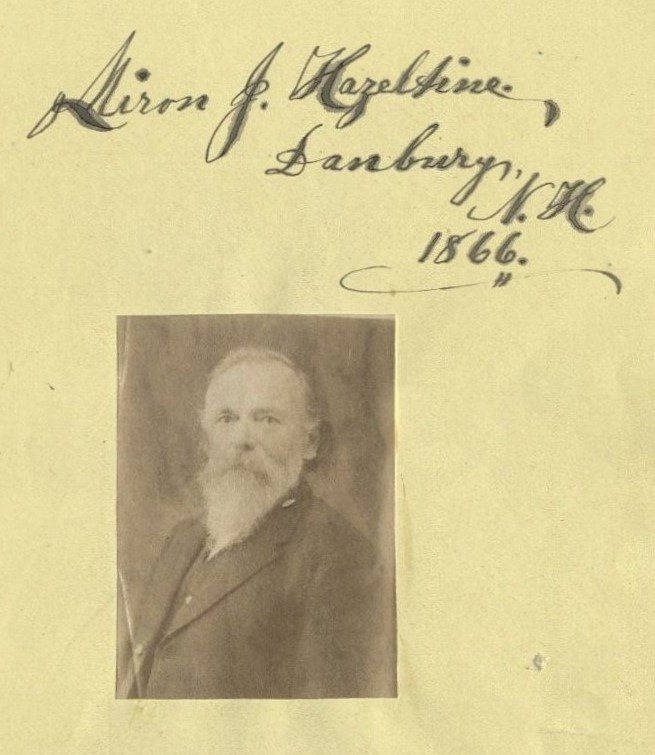 Miron J. Hazeltine.
Danbury,
N. H.
1866.